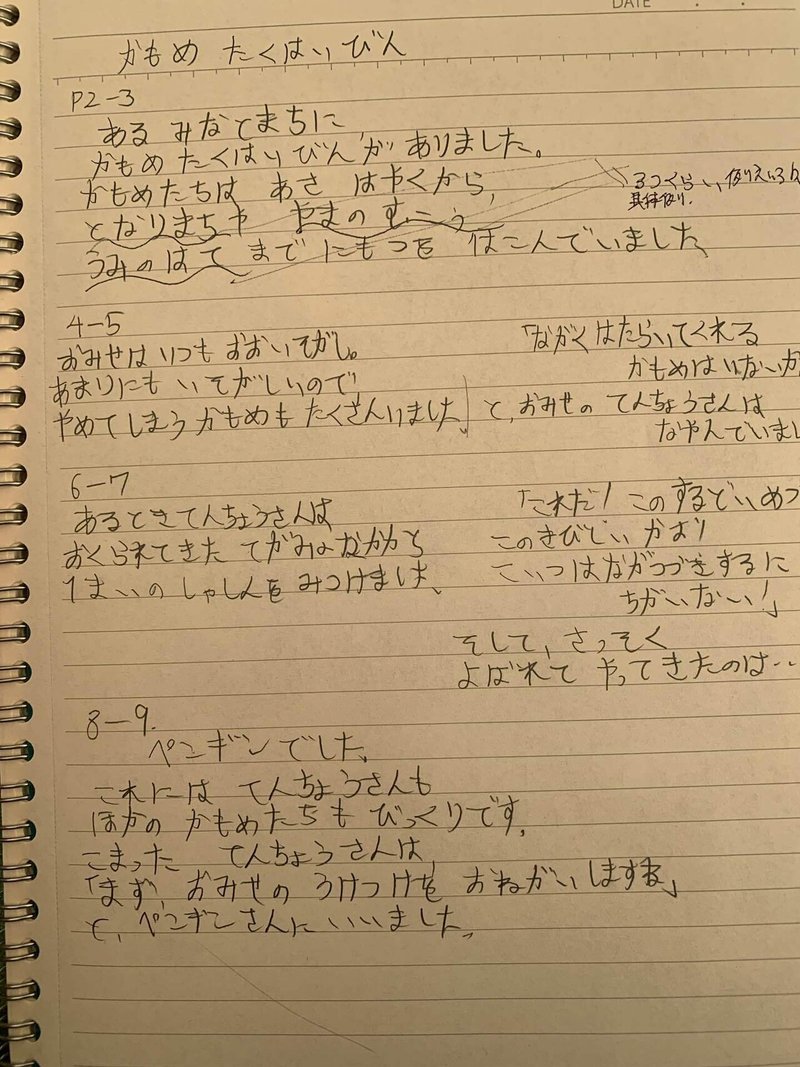 DATE
かもめ たくはいびん
P2-3
ある みなとまちに
かもめ たくはいびんが ありました。
かもめたちは あさ はやくから、
となりまちや やまのむこう
うみのはて までにもつを はこんでいました、
3つくらい、例
具体例.
4-5
おみせは いつも おおいそがし。
あまりにも いそがしいので
やめてしまう かもめも たくさんいました。
「ながく はたらいてくれる
かもめは いないか
と、おみせの てんちょうさんは
なやんでいまし
6-7
あるときてんちょうさんは
おくられてきた てがみのなかから
1まいの しゃしんを みつけました、
「これだ! このするどいめつ
このきびしい かお!
こいつはながつづきするに
ちがいない!」
そして、さっそく
よばれて やってきたのは‥
8-9.
ペンギンでした、
これには てんちょうさんも
ほかの かもめたちも びっくりです、
こまった てんちょうさんは、
「まず、おみせの うけつけを おねがいしますね」
と、ペンギンさんに いいました、